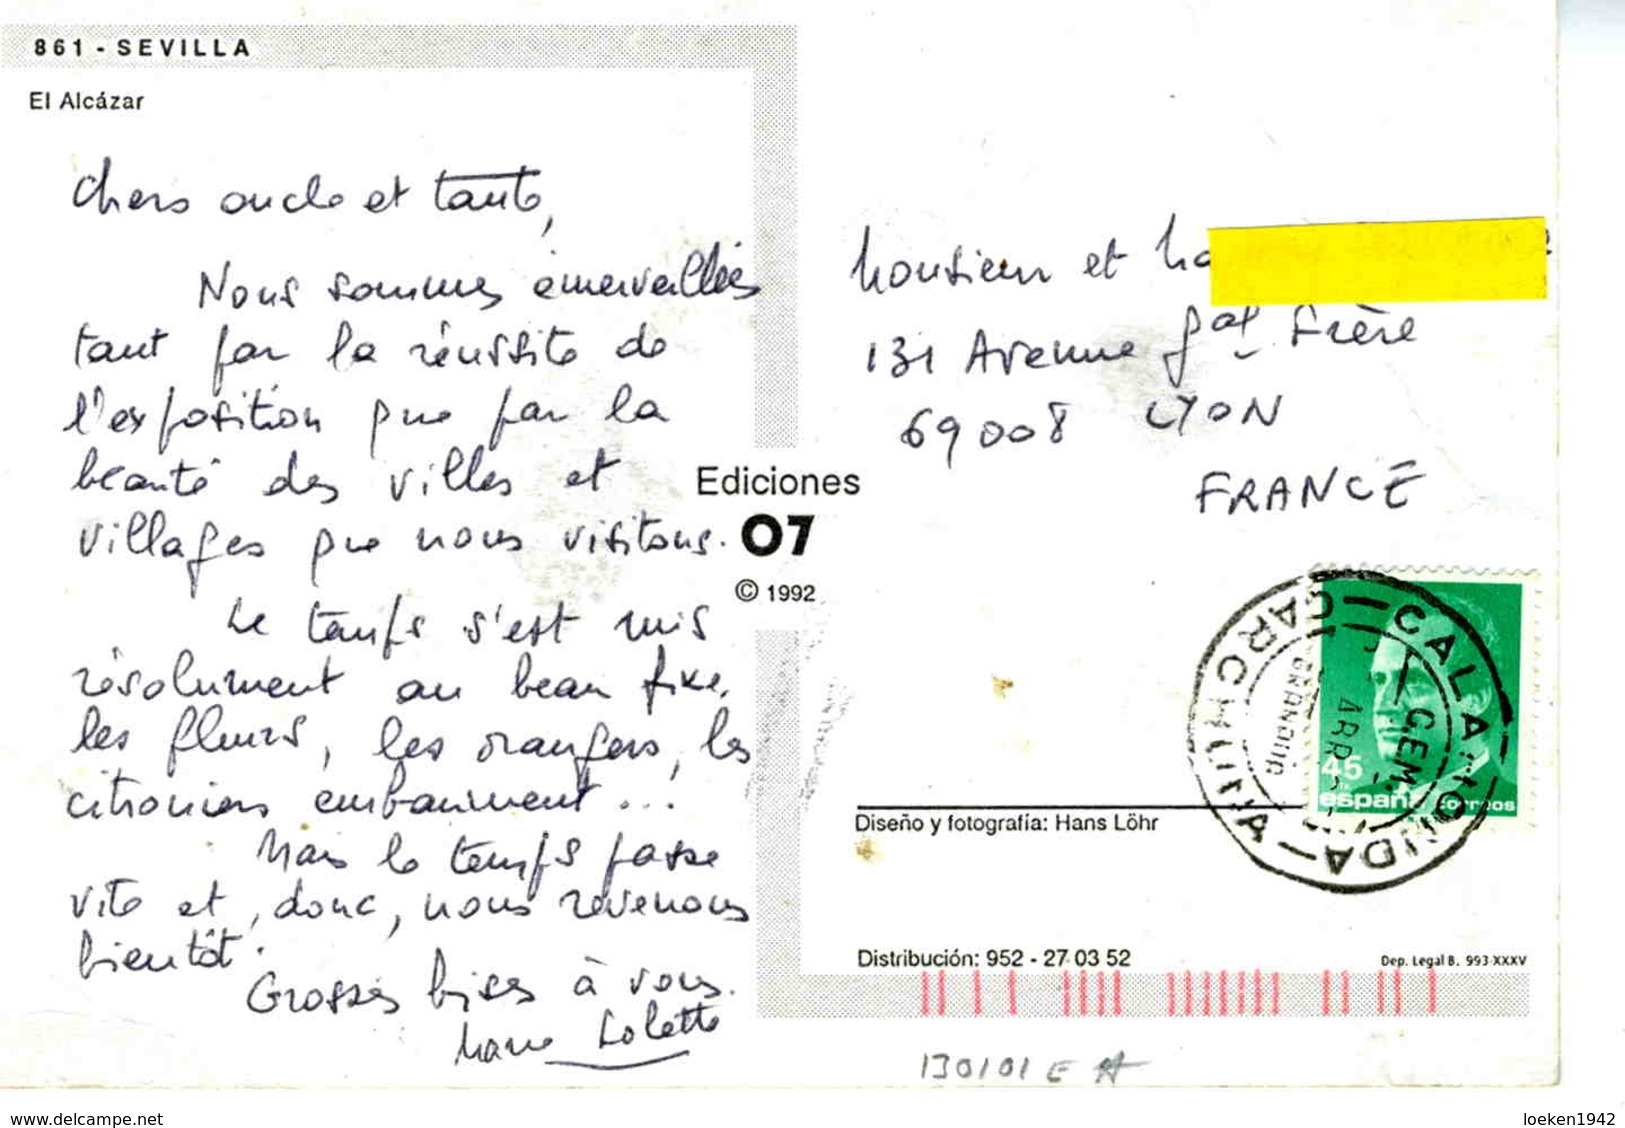 861 - SEVILLA
El Alcázar
Chers oncle et tante,
Nous sommes émerveillées
tant par la réussite de
l'exposition que par la
beauté des villes et
villages que nous visitons.
Le temps s'est mis
résolument au beau fixe.
les fleurs, les orangers, les
citronniers embaument ...
Mais le temps passe
vite et, donc, nous revenons
bientôt.
Grosses bises à vous.
Marie Colette
Ediciones
07
© 1992
Monsieur et
131 Avenue Gal Frère
69008 LYON
FRANCE
CALAHONDA
CARCHUNA
GRANADA
45
españa correos
Diseño y fotografía: Hans Löhr
Distribución: 952 - 27 03 52
Dep. Legal B. 993-XXXV
130101 E
www.delcampe.net
loeken1942